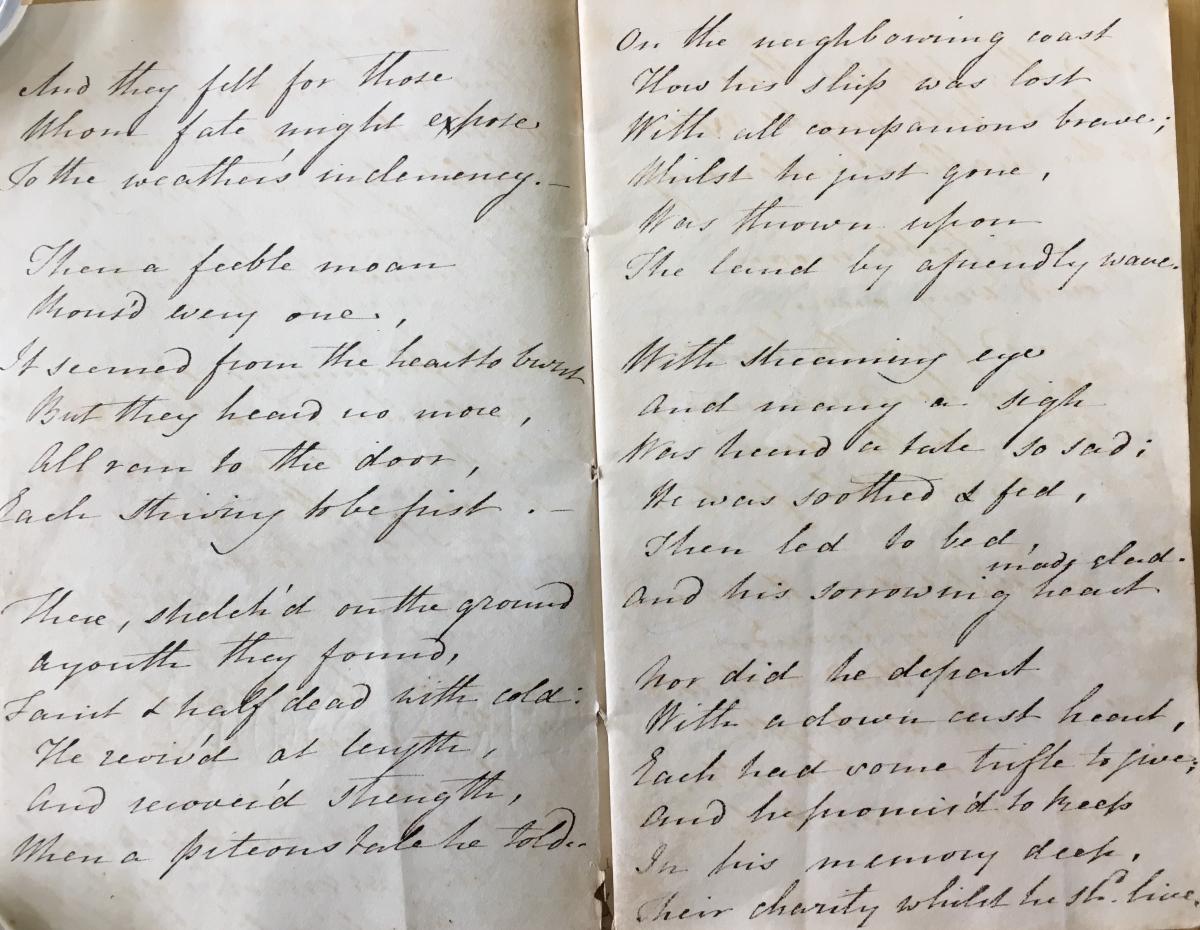 And they felt for those
Whom fate might expose
To the weather's inclemency. –
Then a feeble moan
Rous'd every one,
It seemed from the heart to burst
But they heard no more,
All ran to the door,
Each striving to be first. –
There, stretch'd on the ground
A youth they found,
Faint & half dead with cold:
He reviv'd at length,
And recover'd strength,
When a piteous tale he told.
On the neighbouring coast
How his ship was lost
With all companions brave;
Whilst he just gone,
Was thrown upon
The land by a friendly wave.
With streaming eye
And many a sigh
Was heard a tale so sad;
He was soothed & fed,
Then led to bed,
And his sorrowing heart made glad.
Nor did he depart
With a down cast heart,
Each had some trifle to give;
And he promis'd to keep
In his memory deep,
Their charity whilst he shd. live.